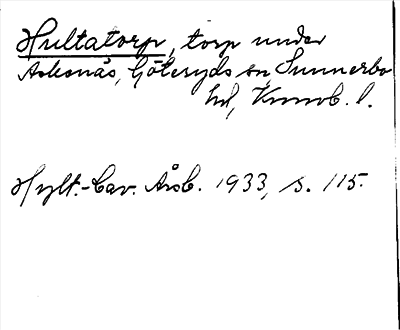 Hultatorp, torp under
Askenäs, Göteryds sn, Sunnerbo
hd, Kronob. l.
Hylt.-Cav. Årsb. 1933, s. 115.